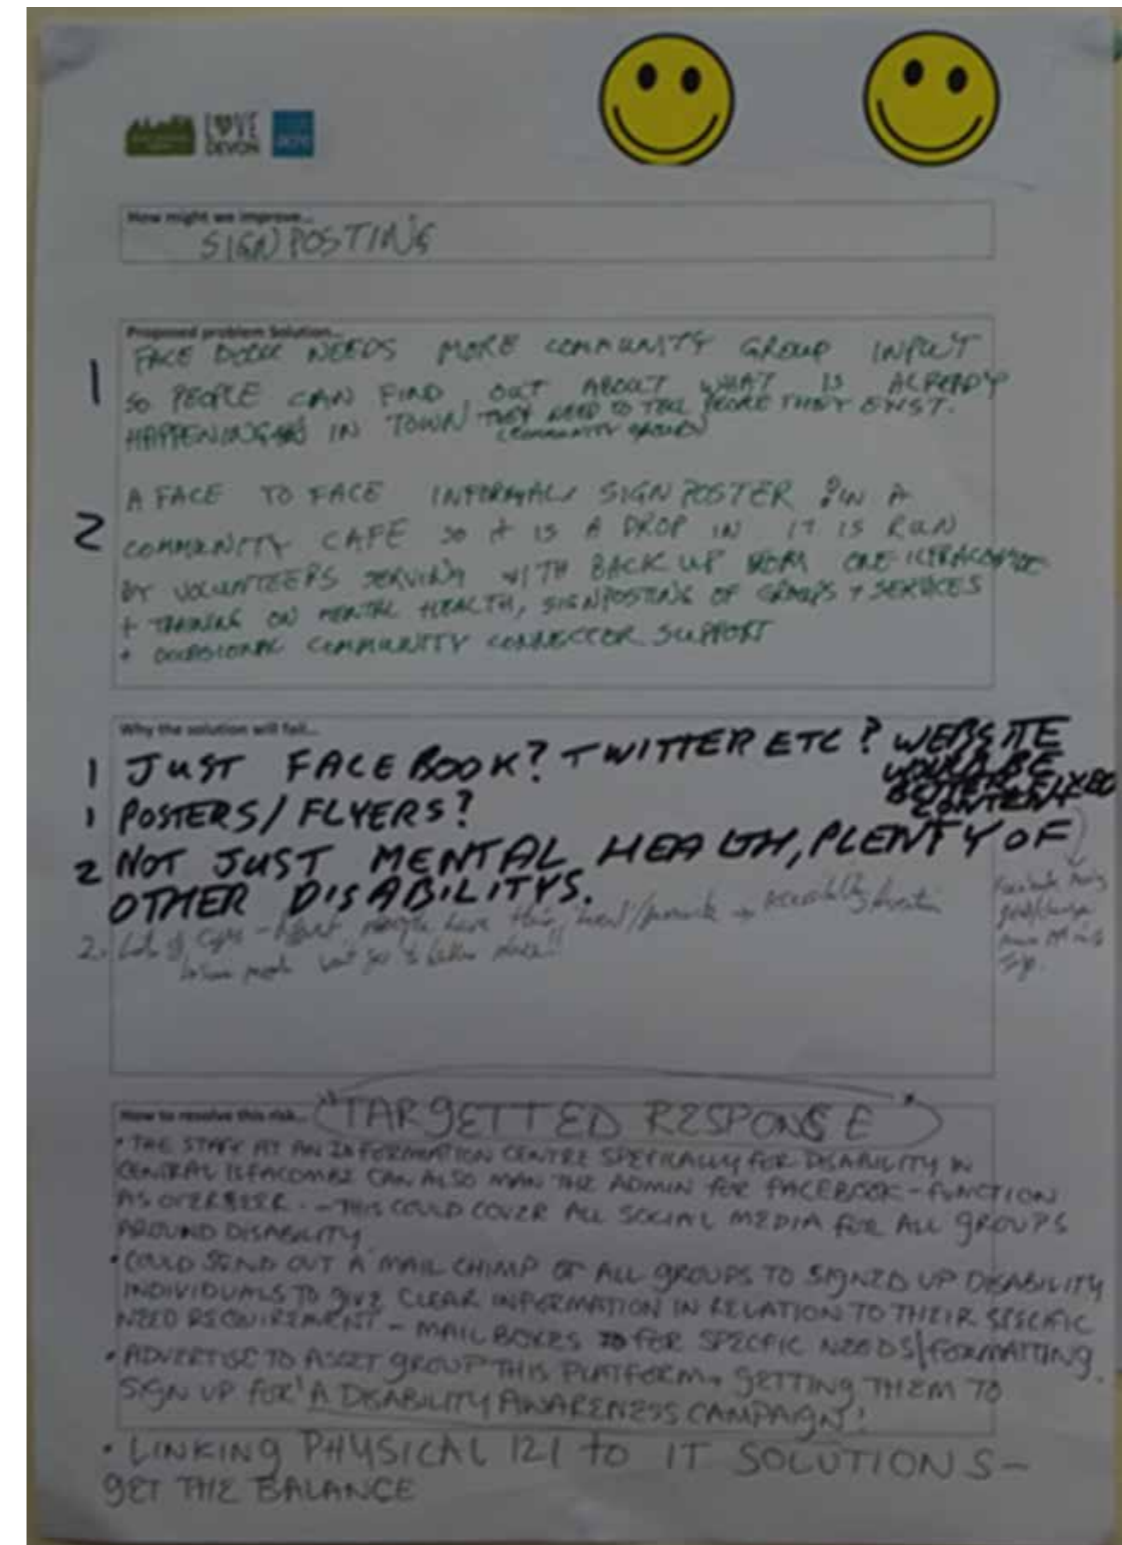 LOVE
DEVON
How might we improve...
SIGNPOSTING
Proposed problem Solution...
1 FACE BOOK NEEDS MORE COMMUNITY GROUP INPUT
SO PEOPLE CAN FIND OUT ABOUT WHAT IS ALREADY
HAPPENING IN TOWN THEY NEED TO TELL PEOPLE THEY EXIST.
(COMMUNITY GROUPS)
2 A FACE TO FACE INFORMAL SIGN POSTER IN A
COMMUNITY CAFE SO IT IS A DROP IN IT IS RUN
BY VOLUNTEERS SERVING WITH BACK UP FROM ONE ILFRACOMBE
+ TRAINING ON MENTAL HEALTH, SIGNPOSTING OF GROUPS + SERVICES
+ OCCASIONAL COMMUNITY CONNECTOR SUPPORT
Why the solution will fail...
1 JUST FACEBOOK? TWITTER ETC? WEBSITE
WOULD BE
BETTER FIXED
CONTENT
1 POSTERS/FLYERS?
2 NOT JUST MENTAL HEALTH, PLENTY OF
OTHER DISABILITYS.
2. Lots of - people have this
How to resolve this risk... TARGETTED RESPONSE
• THE STAFF AT AN INFORMATION CENTRE SPECIFICALLY FOR DISABILITY IN
CENTRAL ILFACOMBE CAN ALSO MAN THE ADMIN FOR FACEBOOK - FUNCTION
AS OVERSEER. - THIS COULD COVER ALL SOCIAL MEDIA FOR ALL GROUPS
AROUND DISABILITY
• COULD SEND OUT A MAIL CHIMP OF ALL GROUPS TO SIGNED UP DISABILITY
INDIVIDUALS TO GIVE CLEAR INFORMATION IN RELATION TO THEIR SPECIFIC
NEED REQUIREMENT - MAIL BOXES FOR SPECFIC NEEDS/FORMATTING.
• ADVERTISE TO ASSET GROUP THIS PLATFORM, GETTING THEM TO
SIGN UP FOR 'A DISABILITY AWARENESS CAMPAIGN!
• LINKING PHYSICAL 121 to IT SOLUTIONS -
GET THE BALANCE